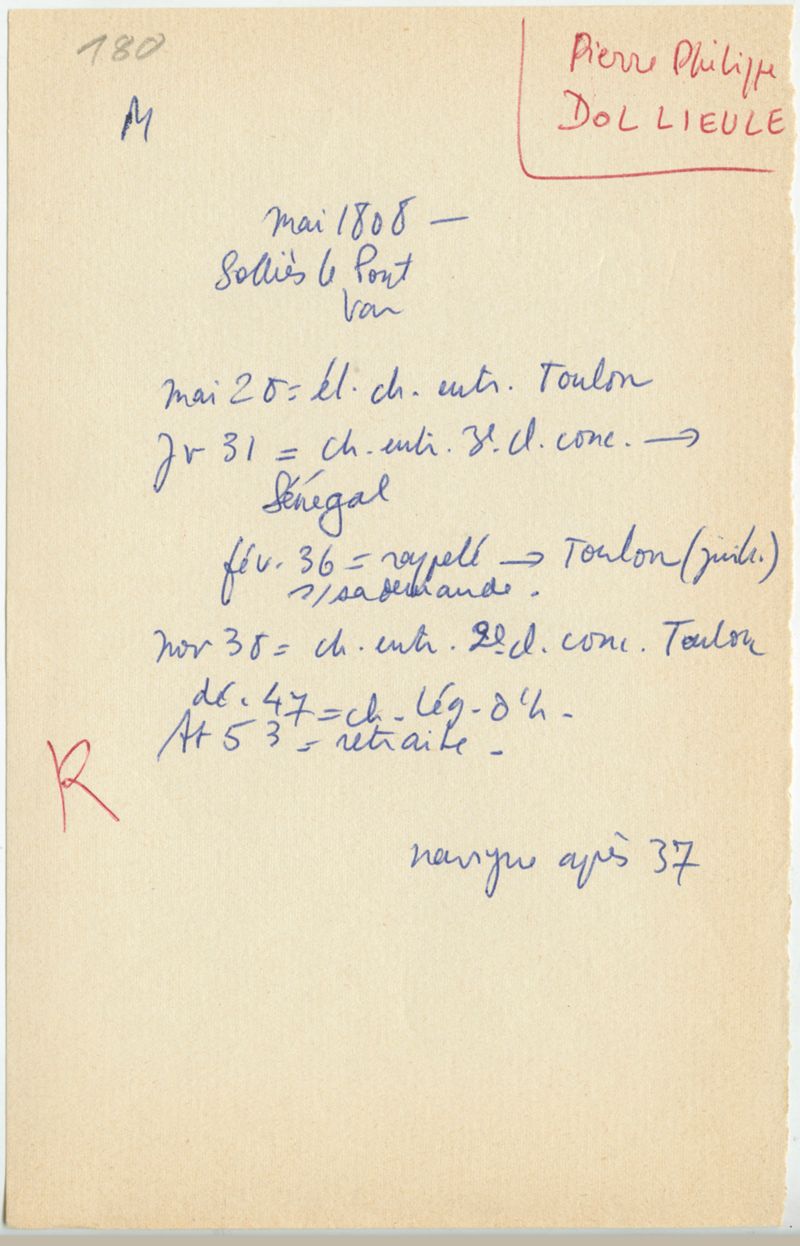 180
Pierre Philippe
DOLLIEULE
M
mai 1808 —
Solliès le Pont
Var
mai 28 = él. ch. entr. Toulon
Jv 31 = ch. entr. 3e cl. conc. →
Sénégal
fév. 36 = rappelé → Toulon (juil.)
s/sa demande.
nov 38 = ch. entr. 2e cl. conc. Toulon
déc. 47 = ch. Lég. d'h.
At 53 = retraite.
R
navigue après 37